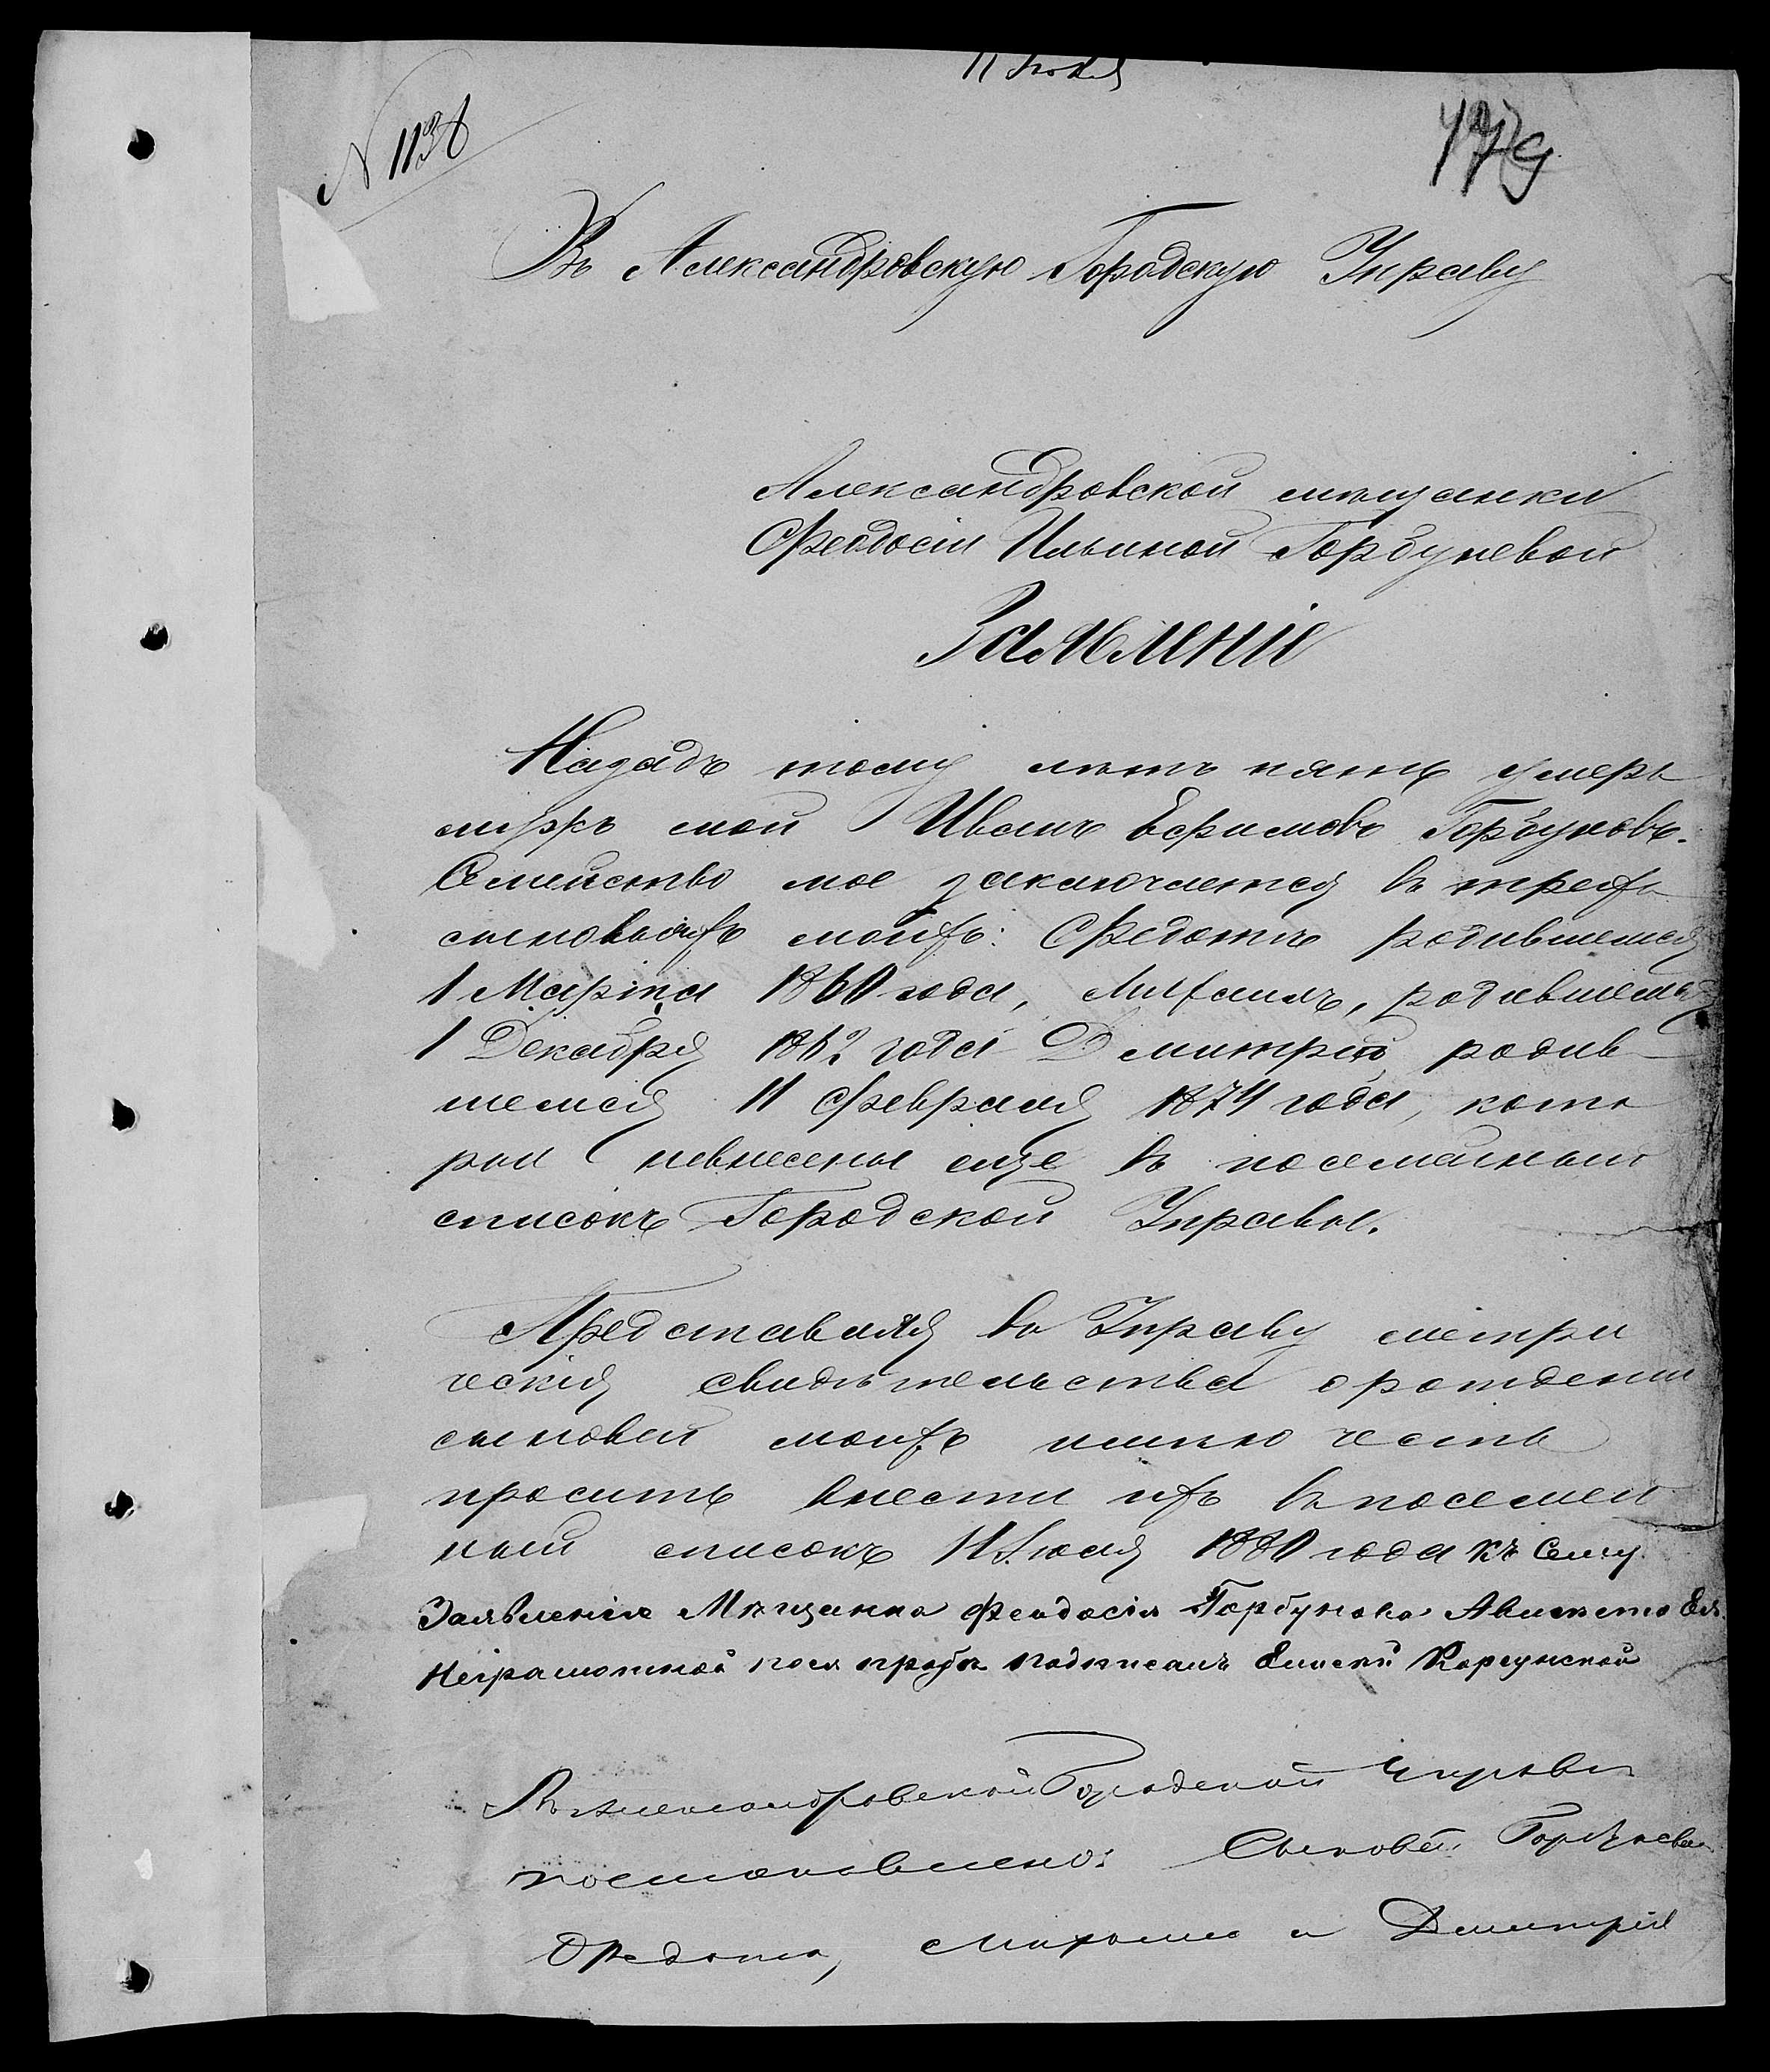 11 Июля
N 1138
Въ Александровскую Городскую Управу
Александровской мѣщанки
Феодосіи Ильиной Горбуневой
Заявленіе
Назадъ тому лѣтъ пять умеръ
мужъ мой Иванъ Ефимовъ Горбуновъ.
Семейство мое заключается въ трехъ
сыновьяхъ моихъ: Федотъ родившемся
1 Марта 1860 года, Михаилъ, родившемся
1 Декабря 1862 года Дмитрій родив
шемся 11 Февраля 1874 года, кото
рыи невнесены еще въ посемейный
списокъ Городской Управы.
Представляя въ Управу метри
ческія свидѣтельства о рожденіи
сыновей моихъ имѣю честь
просить внести ихъ въ посемей
ный списокъ 11 Іюля 1880 года къ сему
Заявленію Мѣщанка Феодосія Горбунова Авместо Ея
Неграмотной поея прозбе Подписалъ Корсунской
Въ Александровской Городской Управѣ
постановлено: Сыновей Горбуневой
Федота, Михаила и Дмитрія